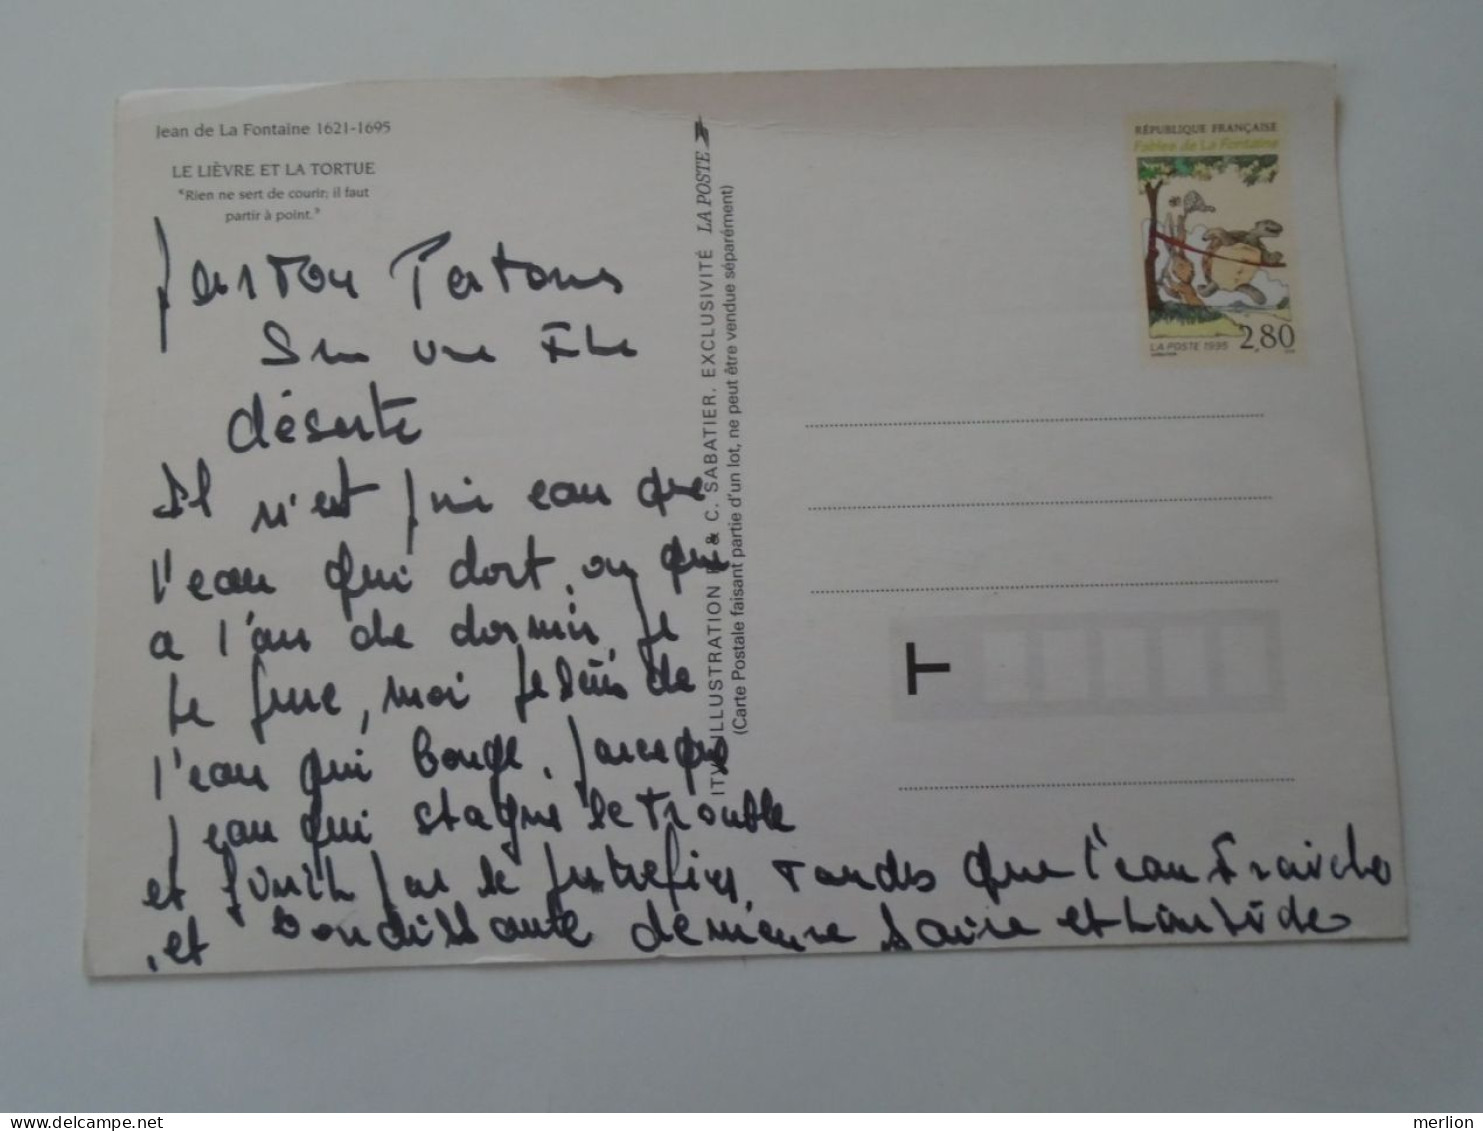 Jean de La Fontaine 1621-1695
LE LIÈVRE ET LA TORTUE
"Rien ne sert de courir; il faut
partir à point."
une
déserte
Il n'est eau que
l'eau qui dort, ou qui
a l'air de dormir, je
, moi je suis de
l'eau qui bouge, parce que
l'eau qui stagne se trouble
et finit par se putréfier, tandis que l'eau fraîche
et bondissante demeure saine et limpide
ITVF ILLUSTRATION R. & C. SABATIER. EXCLUSIVITÉ LA POSTE
(Carte Postale faisant partie d'un lot, ne peut être vendue séparément)
RÉPUBLIQUE FRANÇAISE
Fables de La Fontaine
LA POSTE 1995 2,80
T
merlion